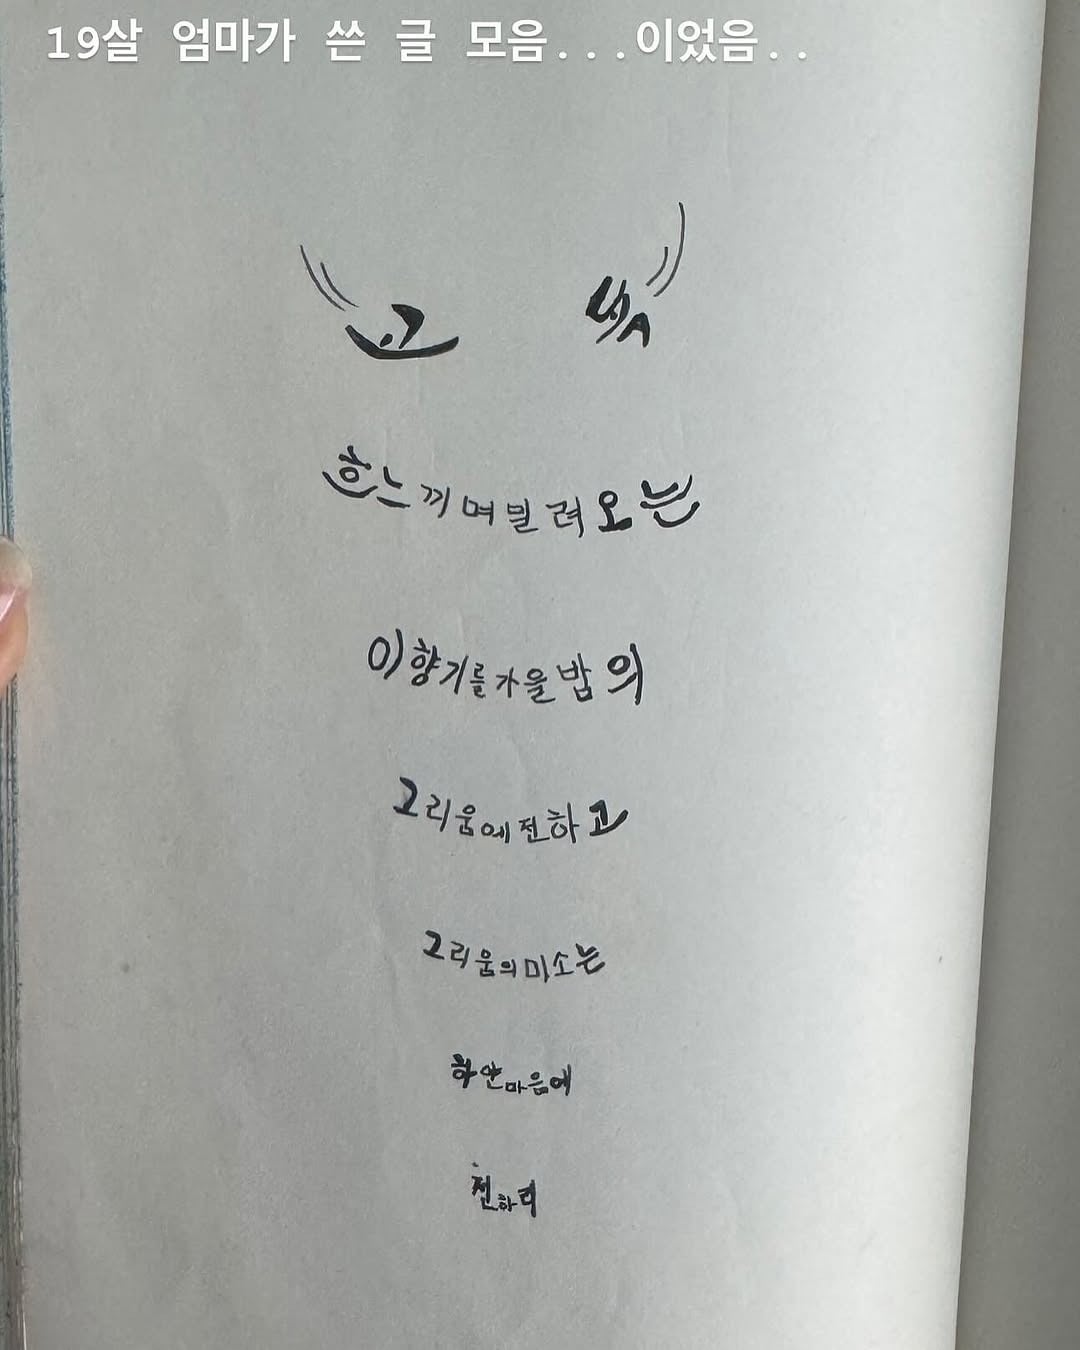 19살 엄마가 쓴 글 모음...이었음..
고 백
흐느끼며밀려오는
이향기를가을밤의
그리움에전하고
그리움의미소는
하얀마음에
전하리